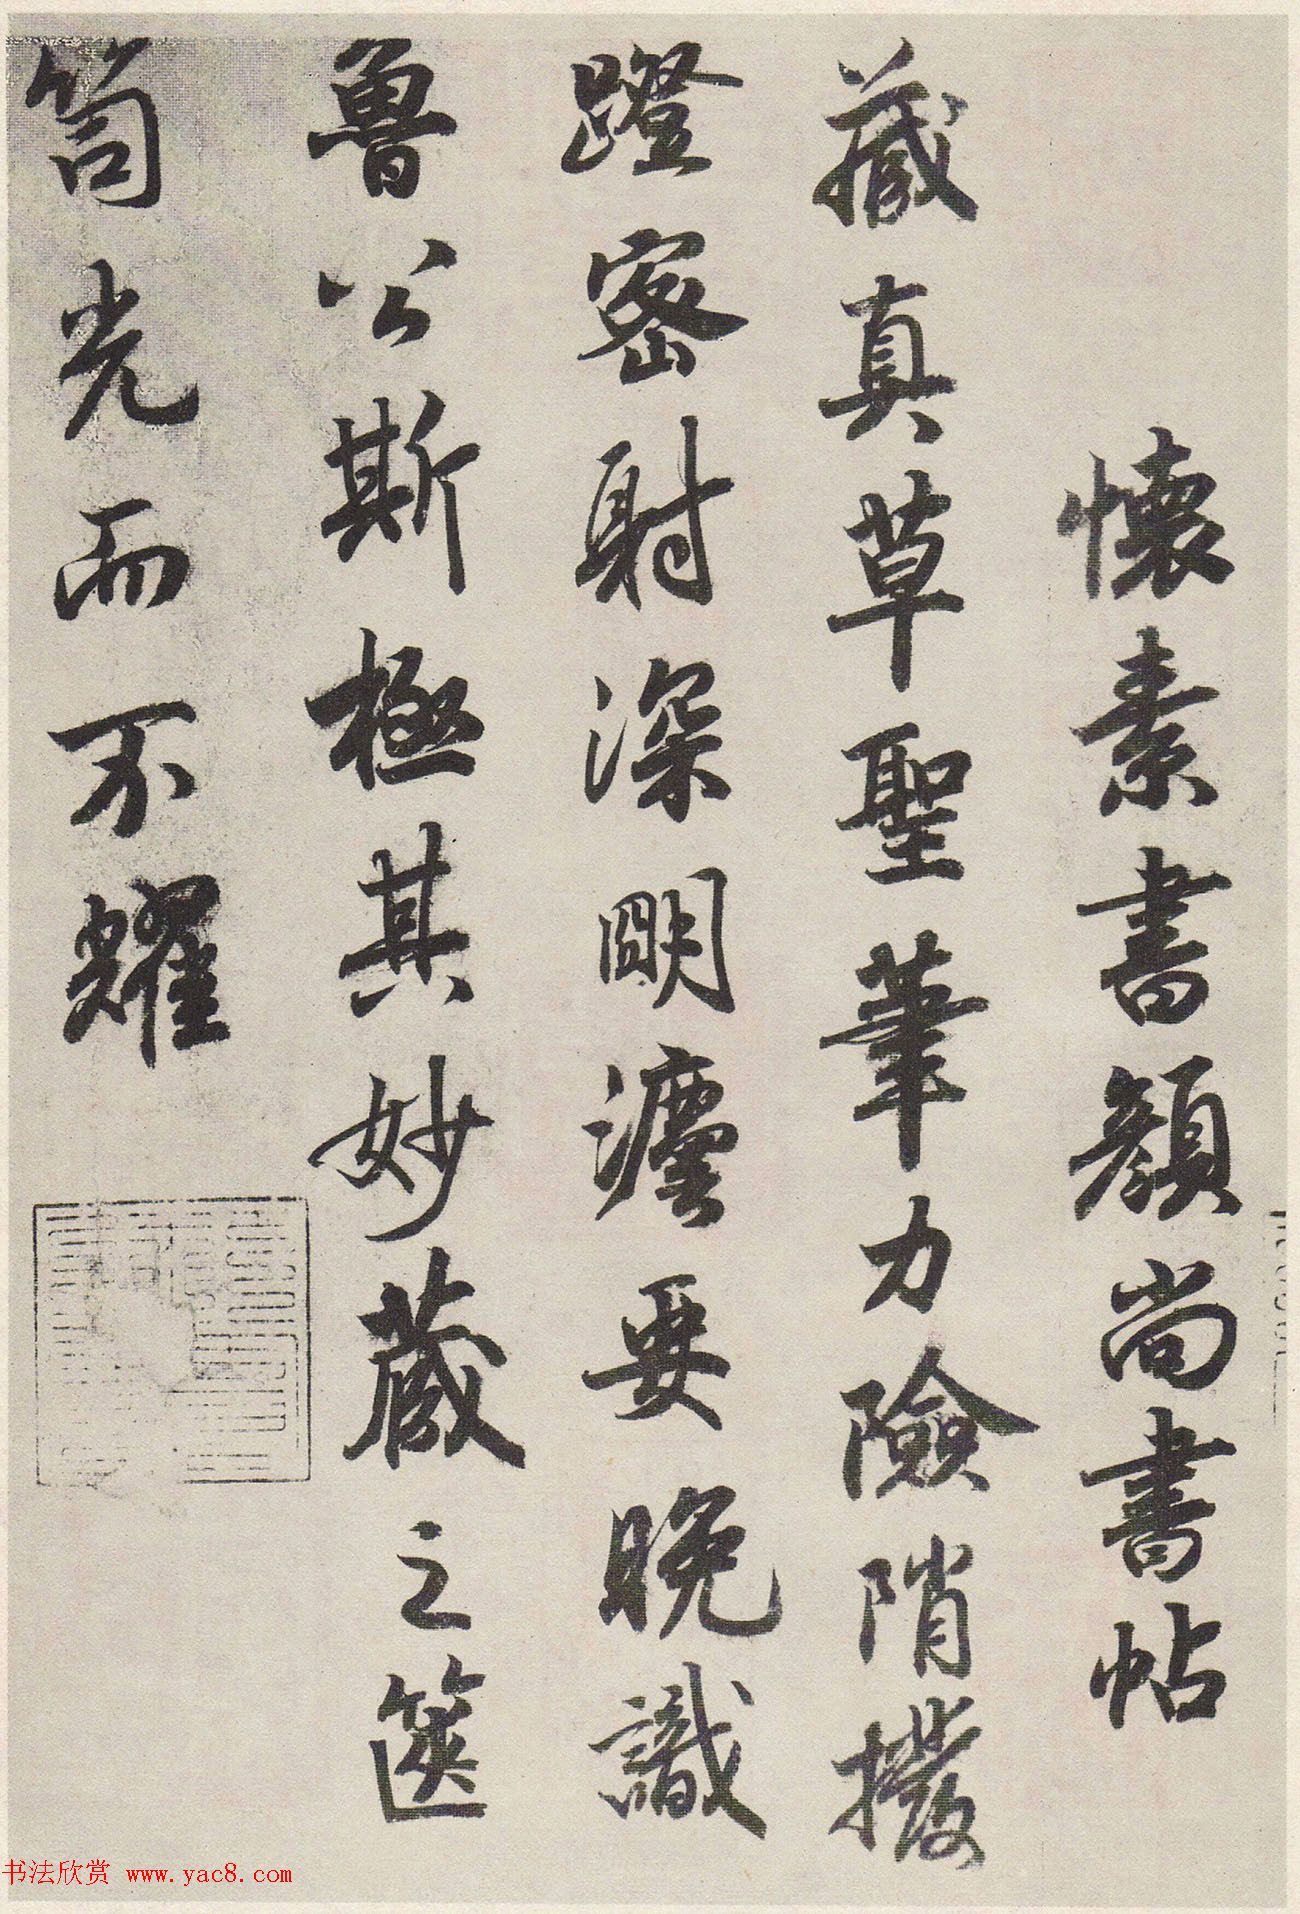 懷素書顏尚書帖
藏真草聖筆力險陗撥
蹬密射深明瀍要晚識
魯公斯極其妙藏之篋
笥光而不耀
书法欣赏 www.yac8.com